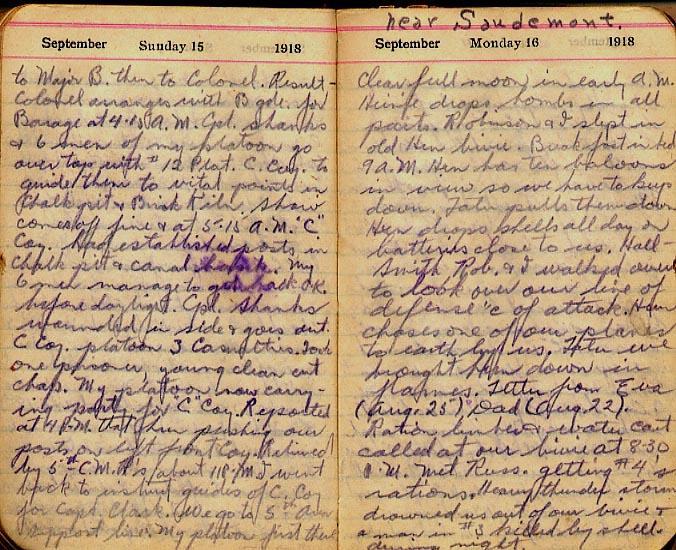 September Sunday 15 1918
to Major B. then to Colonel. Result-
Colonel arranges with B gde. for
Barage at 4.45 A.M. Cpl. Shanks
& 6 men of my platoon go
over top with #12 Plat. C. Coy. to
guide them to vital points in
Chalk pit & Brick Kiln. Show
comes off fine & at 5.15 A.M. "C"
Coy. Had established posts in
Chalk pit & canal My
6 men manage to get back O.K.
before daylight. Cpl. Shanks
wounded in side & goes out.
C Coy. platoon 3 Casualties. Took
one prisoner, young clean cut
chap. My platoon now carry-
ing party for "C" Coy. Reported
at 4 P.M. that Hun pushing our
posts on left front Coy. Relieved
by 5th C.M.R's about 11 P.M. I went
back to instruct guides of C. Coy
for Capt. Clark. We go to 5th
support line. My platoon just there
near Saudemont.
September Monday 16 1918
Clear full moon in early A.M.
Heinie drops bombs in all
parts. Robinson & I slept in
old Hun bivie. Breakfast in bed
9 A.M. Hun has ten baloons
in view so we have to keep
down. Later pulls them down
Hun drops shells all day on
batteries close to us. Hall-
Smith Rob. & I walked over
to look over our line of
defense "c of attack. Hun
chases one of our planes
to earth by us. Later we
brought Hun down in
flames. Letter from Eva
(Aug. 25) Dad (Aug. 22).
Ration limber & water cart
called at our bivie at 8.30
P.M. Met Russ. getting #4's
rations. Heavy thunder storm
drowned us out of our bivie &
a man in #3 killed by shell
during night.